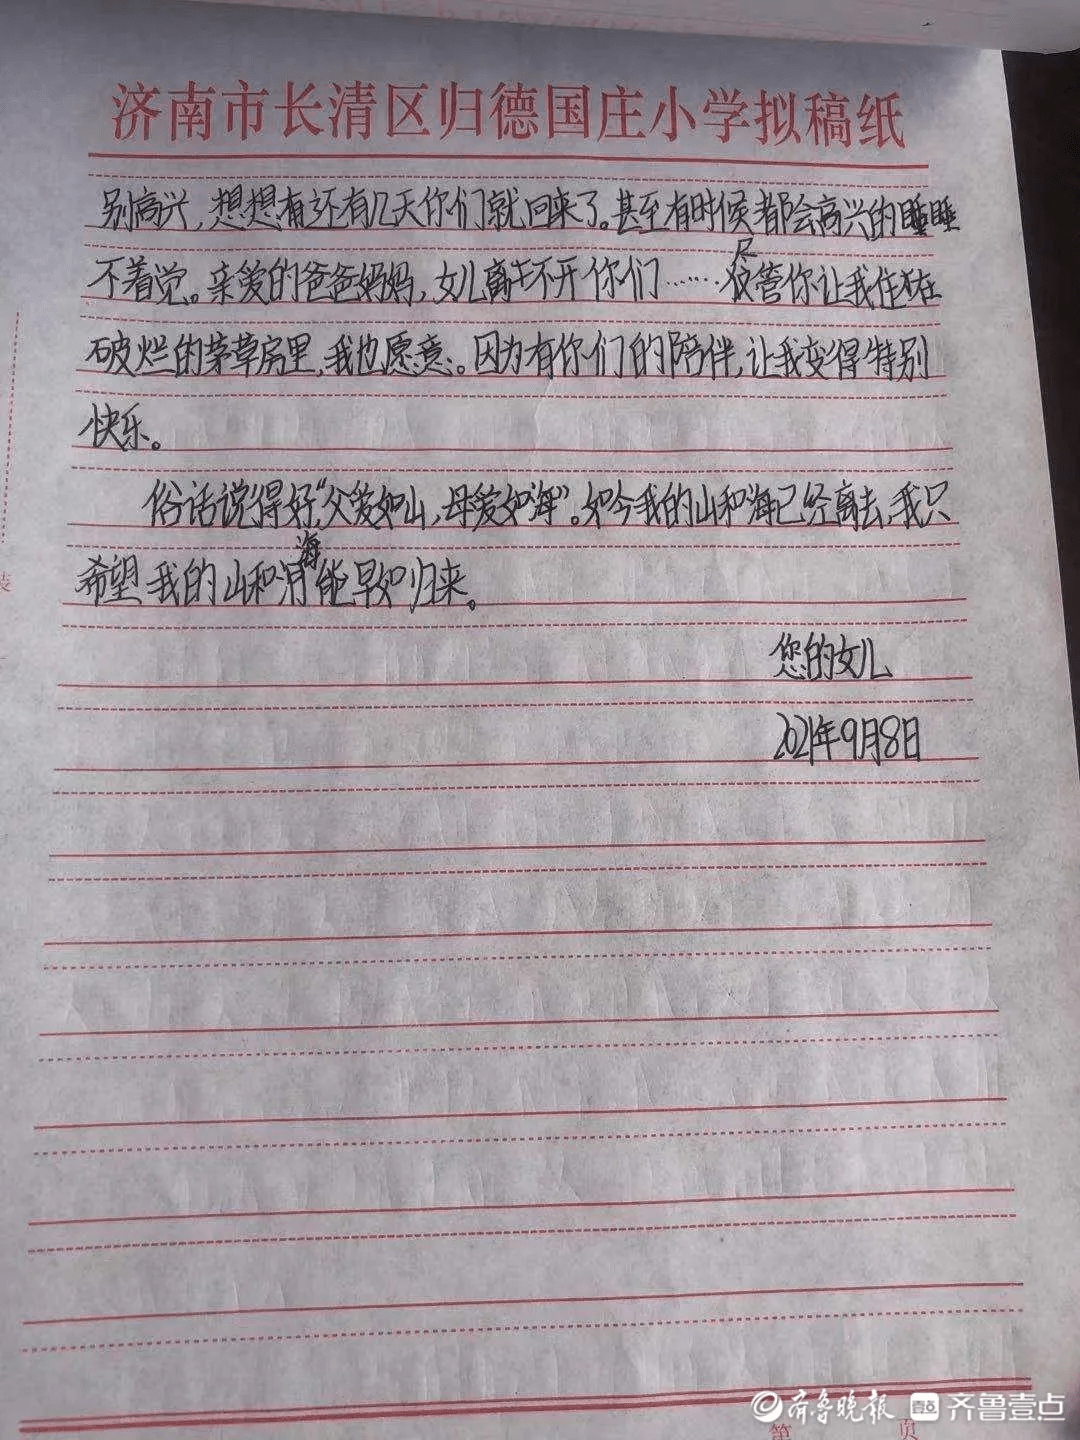 济南市长清区归德国庄小学拟稿纸
别高兴，想想有还有几天你们就回来了。甚至有时候都会高兴的睡睡
不着觉。亲爱的爸爸妈妈，女儿离不开你们……尽管你让我住在
破烂的茅草房里，我也愿意。因为有你们的陪伴，让我变得特别
快乐。
俗话说得好，“父爱如山，母爱如海”。如今我的山和海已经离去，我只
海
希望我的山和能早如归来。
您的女儿
2021年9月8日
装
第 页
齐鲁晚报 齐鲁壹点